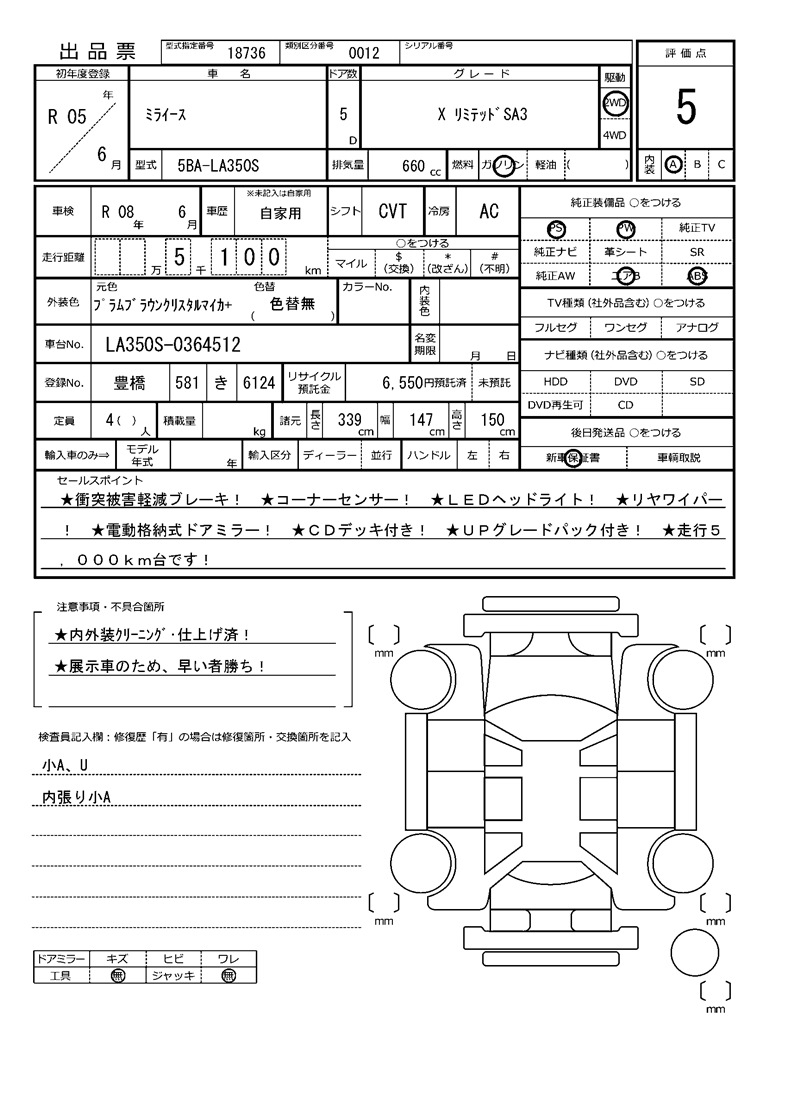 出品票 型式指定番号 18736 類別区分番号 0012 シリアル番号 評価点
初年度登録 車名 ドア数 グレード 駆動
R 05 年 6 月 ミライース 5 D X リミテッドSA3 2WD 4WD 5
型式 5BA-LA350S 排気量 660 cc 燃料 ガソリン 軽油 ( ) 内装 A B C
車検 R 08 年 6 月 車歴 ※未記入は自家用 自家用 シフト CVT 冷房 AC 純正装備品 ○をつける
PS PW 純正TV
走行距離 万 5 千 1 0 0 km ○をつける 純正ナビ 革シート SR
マイル $(交換) *(改ざん) #(不明) 純正AW エアB ABS
外装色 元色 プラムブラウンクリスタルマイカ+ 色替 ( 色替無 ) カラーNo. 内装色 TV種類(社外品含む)○をつける
フルセグ ワンセグ アナログ
車台No. LA350S-0364512 名変期限 月 日 ナビ種類(社外品含む)○をつける
登録No. 豊橋 581 き 6124 リサイクル預託金 6,550円預託済 未預託 HDD DVD SD
DVD再生可 CD
定員 4( )人 積載量 kg 諸元 長さ 339 cm 幅 147 cm 高さ 150 cm 後日発送品 ○をつける
輸入車のみ⇒ モデル年式 年 輸入区分 ディーラー 並行 ハンドル 左 右 新車保証書 車輌取説
セールスポイント
★衝突被害軽減ブレーキ! ★コーナーセンサー! ★LEDヘッドライト! ★リヤワイパー
! ★電動格納式ドアミラー! ★CDデッキ付き! ★UPグレードパック付き! ★走行5
,000km台です!
注意事項・不具合箇所
★内外装クリーニング・仕上げ済!
★展示車のため、早い者勝ち!
検査員記入欄:修復歴「有」の場合は修復箇所・交換箇所を記入
小A、U
内張り小A
mm mm
mm mm
mm
ドアミラー キズ ヒビ ワレ
工具 無 ジャッキ 無